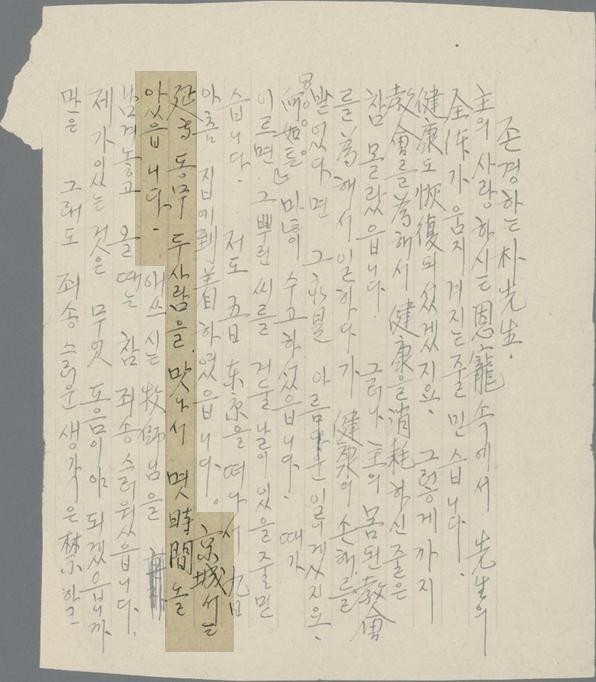 존경하는 朴先生.
主의 사랑하시는 恩寵 속에서 先生의
全体가 움지겨지는줄 믿습니다.
健康도 恢復되섯겠지요. 그렇게까지
敎會를 爲해서 健康을 消耗하신 줄은
참 몰랐읍니다. 그러나 主의 몸된 敎會
를 爲해서 일하다가 健康의 손해를
받었다면 그 亦是 아름다운 일이겠지요.
수고하섰읍니다. 때가
이르면 그 뿌린 씨를 거둘 날이 있을 줄 믿
습니다. 저도 五日 東京을 떠나서 九日
아츰 집에 到着하였읍니다. 京城서는
동무 두 사람을 맛나서 몇 時間 놀
았읍니다. 애쓰시는 牧師님을
남겨놓고 올 때는 참 죄송스러웠읍니다.
제가 있는 것은 무엇 도음이야 되겠읍니까
만은 그래도 죄송스러운 생각은 禁할